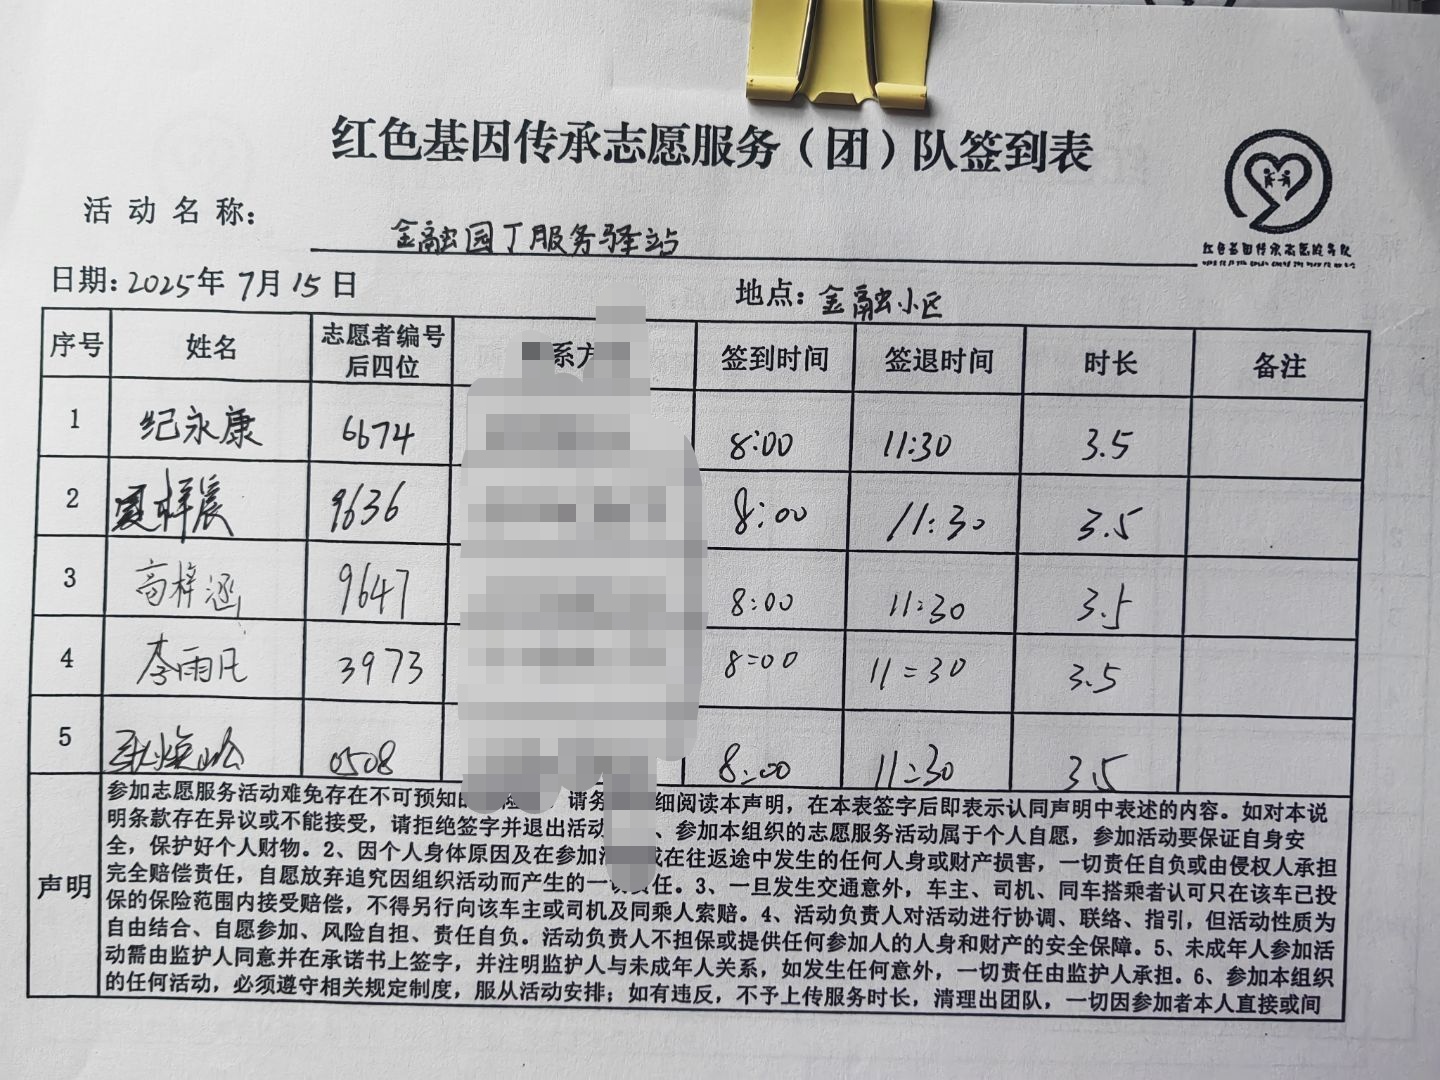 红色基因传承志愿服务（团）队签到表
红色基因传承志愿服务队
活动名称： 金融园丁服务驿站
日期：2025年7月15日 地点：金融小区
序号 姓名 志愿者编号后四位 系方 签到时间 签退时间 时长 备注
1 纪永康 6674 8:00 11:30 3.5
2 夏梓宸 9636 8:00 11:30 3.5
3 高梓涵 9647 8:00 11:30 3.5
4 李雨凡 3973 8:00 11:30 3.5
5 0508 8:00 11:30 3.5
声明
参加志愿服务活动难免存在不可预知的 请务 细阅读本声明，在本表签字后即表示认同声明中表述的内容。如对本说
明条款存在异议或不能接受，请拒绝签字并退出活动 、参加本组织的志愿服务活动属于个人自愿，参加活动要保证自身安
全，保护好个人财物。2、因个人身体原因及在参加活 或在往返途中发生的任何人身或财产损害，一切责任自负或由侵权人承担
完全赔偿责任，自愿放弃追究因组织活动而产生的一切责任。3、一旦发生交通意外，车主、司机、同车搭乘者认可只在该车已投
保的保险范围内接受赔偿，不得另行向该车主或司机及同乘人索赔。4、活动负责人对活动进行协调、联络、指引，但活动性质为
自由结合、自愿参加、风险自担、责任自负。活动负责人不担保或提供任何参加人的人身和财产的安全保障。5、未成年人参加活
动需由监护人同意并在承诺书上签字，并注明监护人与未成年人关系，如发生任何意外，一切责任由监护人承担。6、参加本组织
的任何活动，必须遵守相关规定制度，服从活动安排；如有违反，不予上传服务时长，清理出团队，一切因参加者本人直接或间